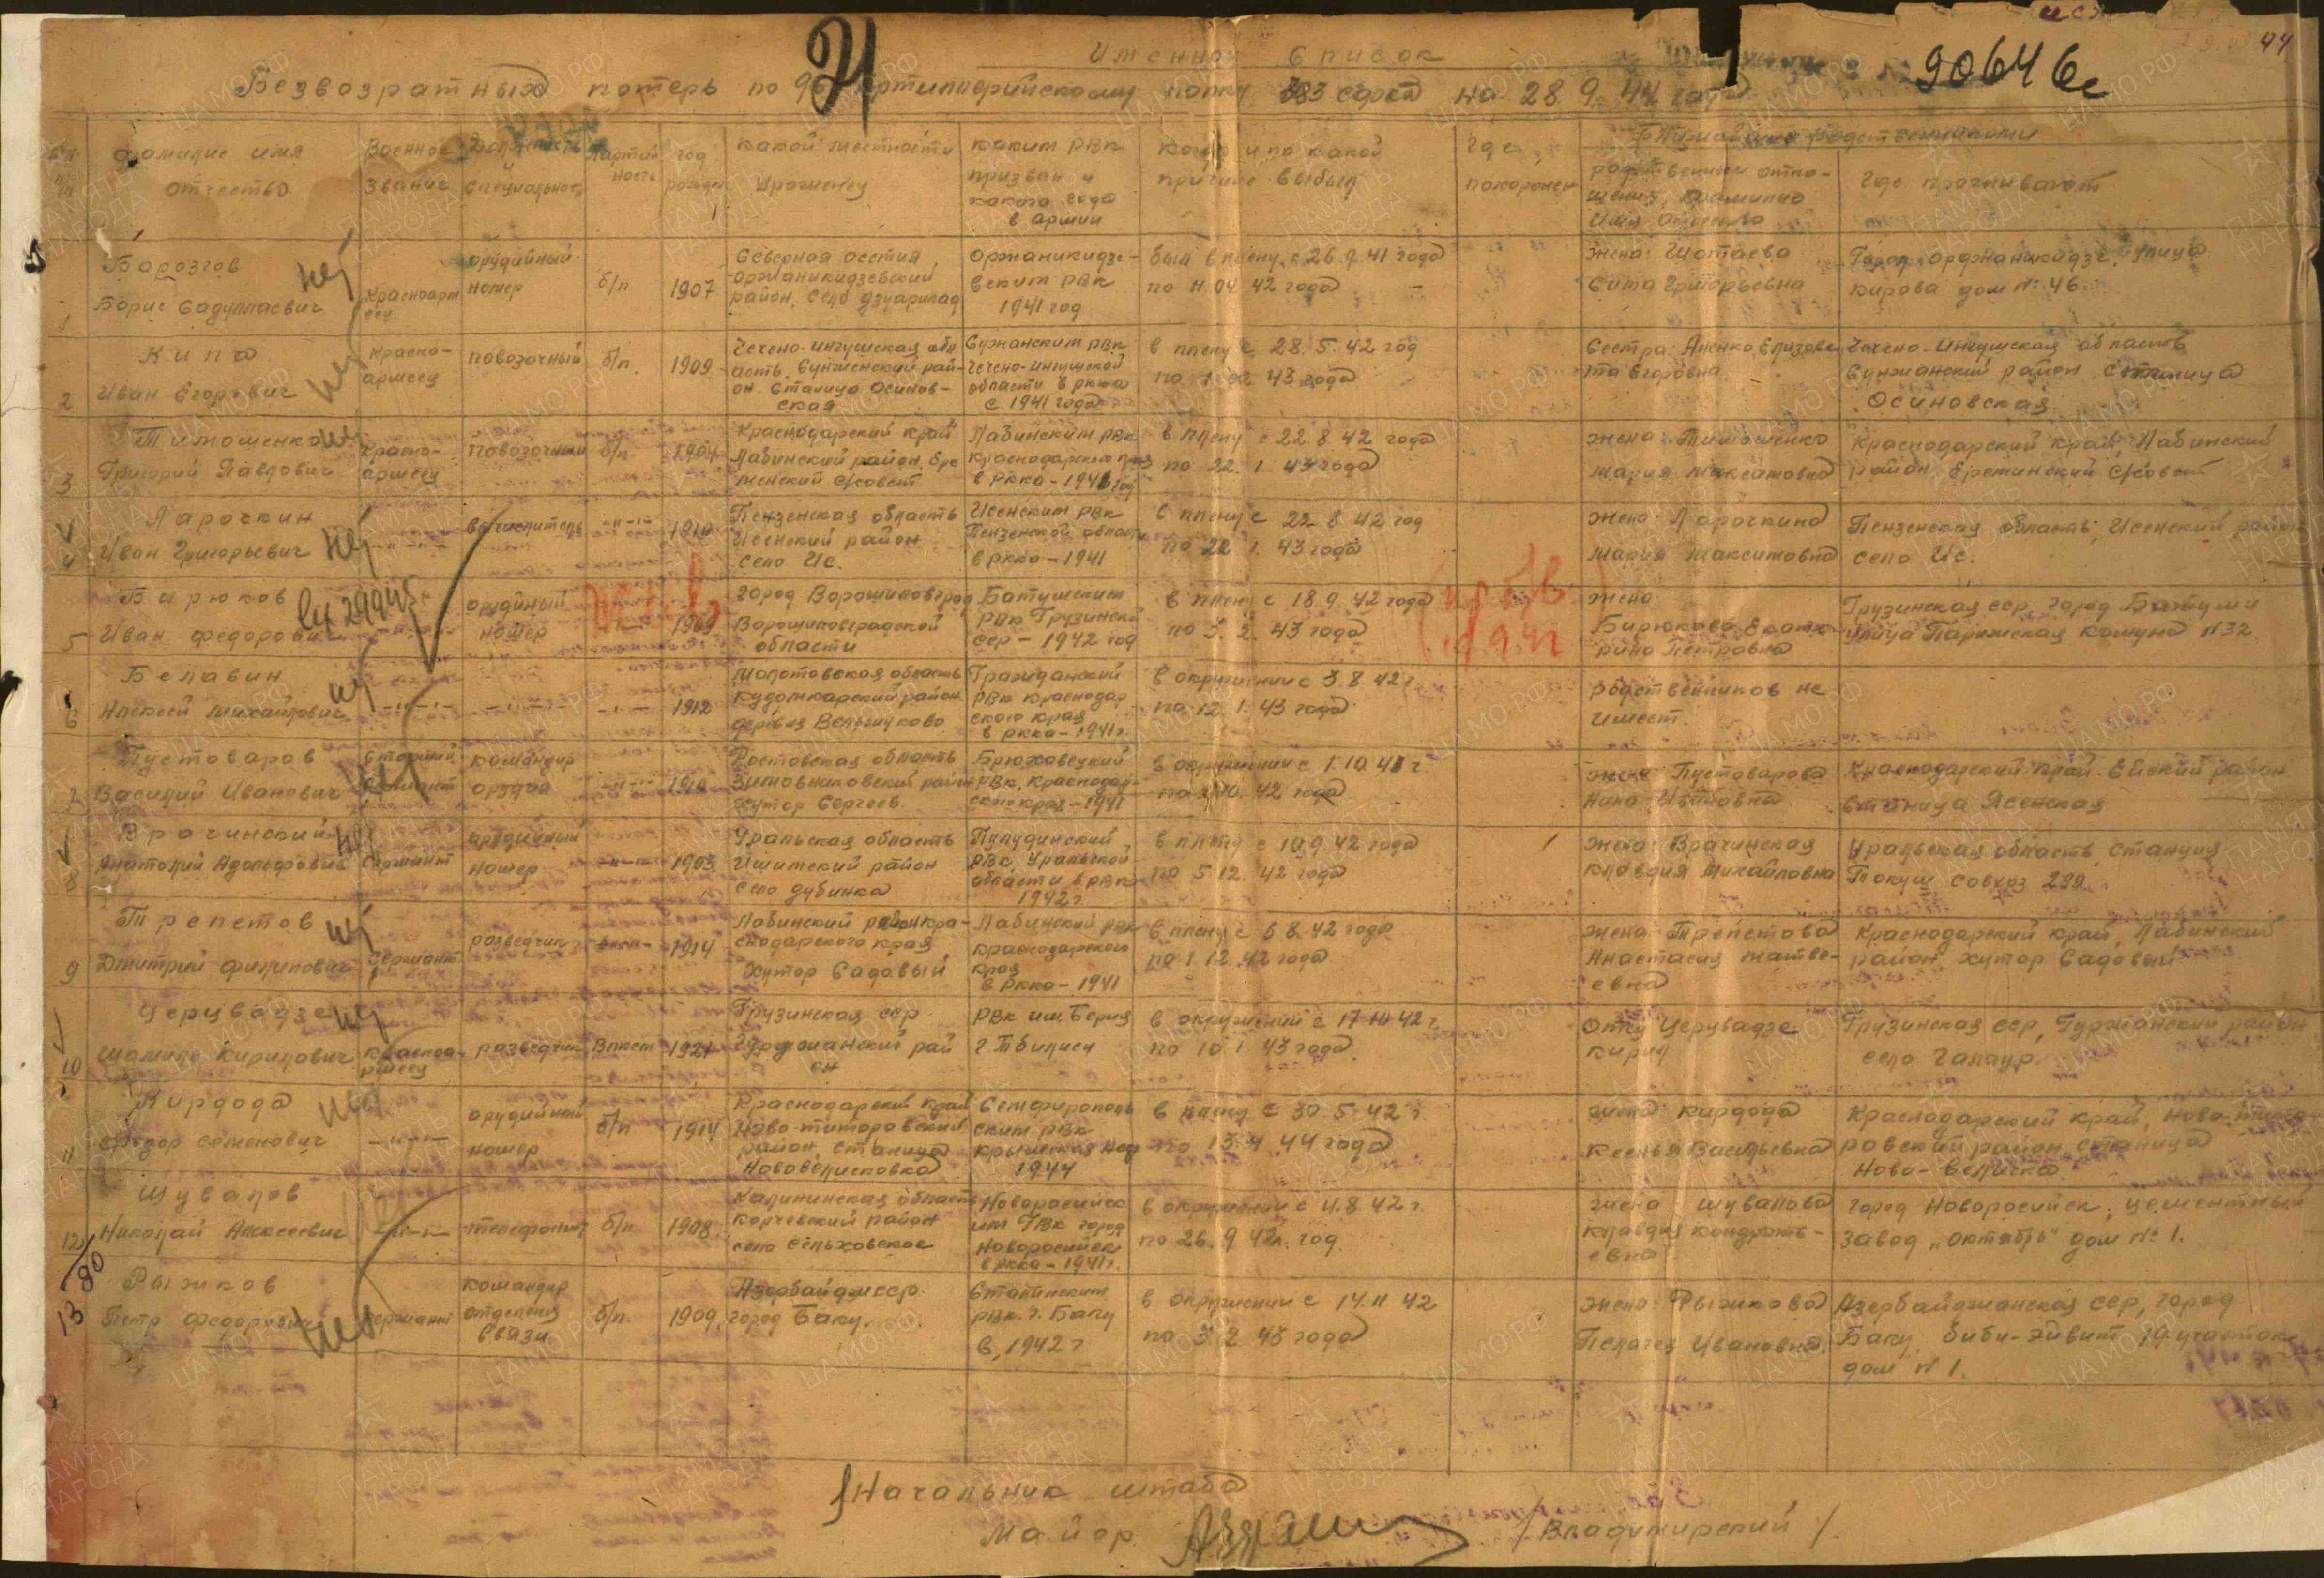 Именной Список
90646с
Безвозвратных потерь по артиллерийскому полку 383 сдка на 28 9 44 года
44
№ п/п
фамилие имя отчество
Военное звание
Должность и специальность
Партийность
год рожден
какой местности урожнец
каким РВК призван и какого года в армии
Когда и по какой причине выбыл
где похоронен
родственники отношения, фамилию имя отчество
где проживают
1
Борозгов
Борис Садуллаевич
нет
Красноармеец
орудийный номер
б/п
1907
Северная осетия, оржаникидзевский район, село Дзуарикад
Оржаникидзевским РВК 1941 год
был в плену с 26.9.41 года
по 11 04 42 года
жена: Шотаева
Сита Григорьевна
Город орджаникидзе, улица
кирова дом № 46.
2
Кипа
Иван Егорович
нет
Красноармеец
повозочный
б/п.
1909
Чечено-ингушская область, Сунженский район. Станица Осиновская
Сунжанским РВК Чечено-ингушской области в ркка с 1941 года
в плену с 28.5.42 год
43 года
Сестра: Аненко Елизовета Егоровна
Чечено-Ингушская область
Сунжанский район станица
Осиновская
3
Тимошенко
Григорий Павлович
нет
красноармеец
повозочный
б/п
Краснодарский край
Лабинский район, Ереминский с/совет
Лабинским РВК Краснодарского края в ркка - 1941 год
в плену с 22 8 42 года
по 22. 1 43 года
жена Тимошенко
Мария Максимовна
Краснодарский край, Лабинский
район, Ереминский с/совет
4
Ларочкин
Иван Григорьевич
нет
-"-"-
вычислитель
-"-"-
1910
Пензенская область
Исенский район
село Ис.
Исенским РВК Пензенской области в ркка - 1941
в плену с 22 8 42 год
по 22 1. 43 года
жена: Ларочкина
Мария Максимовна
Пензенская область, Исенский район
село Ис.
5
Бирюков
Иван Федорович
-"-"-
орудийный номер
жив
1909
город Ворошиловград
Ворошиловградской области
Батумским РВК Грузинской ССР - 1942 год
в плену с 18 9 42 года
по 5. 2. 43 года
жена
Бирюкова Екатерина Петровна
Грузинская ССР, город Батуми
улица Парижская комуна №32
6
Белавин
Алексей Михайлович
нет
-"-"-
-"-"-
-"-
1912
Молотовская область
Кудымкарский район
деревня Вельшуково
Гражданский РВК Краснодарского края в ркка - 1941 г.
в окружении с 3.8.42 г
по 12. 1. 43 года
родственников не
имеет.
7
Пустоваров
Василий Иванович
нет
Старший сержант
командир орудия
-"-"-
1910
Ростовская область
Зимовниковский район
хутор Сергеев
Брюховецкий РВК, Краснодарского края - 1941
в окружении с 1.10.41 г
10. 42 года
жена Пустоварова
Краснодарский край. Ейский район
станица Ясенская
8
Врачинский
Анатолий Адольфович
нет
Сержант
орудийный номер
-"-"-
1903
Уральская область
Ишимский район
село Дубинка
Полудинский РВК Уральской области в РВК 1942 г
в плену с 10 9 42 года
по 5 12. 42 года
жена: Врачинская
Клавдия Михайловна
Уральская область, станция
Токуш Совхоз 299.
9
Трепетов
Дмитрий Филипович
нет
Сержант
разведчик
1914
Лабинский район Краснодарского края
хутор Садовый
Лабинский РВК Краснодарского края в ркка - 1941
в плену с 6 8.42 года
по 1 12.42 года
жена Трепетова
Анастасия Матвеевна
Краснодарский край, Лабинский
район хутор Садовый
10
Церцвадзе
Шамиль Кирилович
нет
Красноармеец
разведчик
Влксм
1921
Грузинская ССР
Гурджанский район
РВК им. Берия
г. Тбилиси
в окружений с 17 10 42 г
по 10 1. 43 года.
отец Церувадзе
Кирил
Грузинская ССР, Гуржанский район
село Чалаур.
11
Кирдода
Федор Семенович
нет
-"-"-
орудийный номер
б/п
1914
Краснодарский край
Ново-титоровский район, станица Нововелисковка
Семфиропольским РВК Крымская 1944
в плену с 30.5.42 г.
по 13.4.44 года
жена Кирдода
Ксенья Васильевна
Краснодарский край, Ново-титоровский район станица
Ново-Велиска
12
Шувалов
Николай Алексеевич
-"-"-
телефонист
б/п
1908
Калининская область
Корчевский район
село Сельховское
Новоросийским ГВК город Новоросийск в ркка - 1941 г.
в окружении с 4.8.42 г.
по 26.9 42 г. год
жена Шувалова
Клавдия Кондратьевна
город Новоросийск, цементный
завод "октябрь" дом № 1.
13
80
Рыжков
Петр Федорович
нет
Сержант
командир отделения связи
б/п
1909
Азербайджсср.
город Баку.
Сталинским РВК. г. Баку
в 1942 г
в окружении с 14.11 42
по 3 2 43 года
жена: Рыжкова
Пелагея Ивановна.
Азербайджанская ССР, город
Баку, биби-эйвит 19 участок
дом № 1.
Начальник штаба
Майор
/Владимирский/.